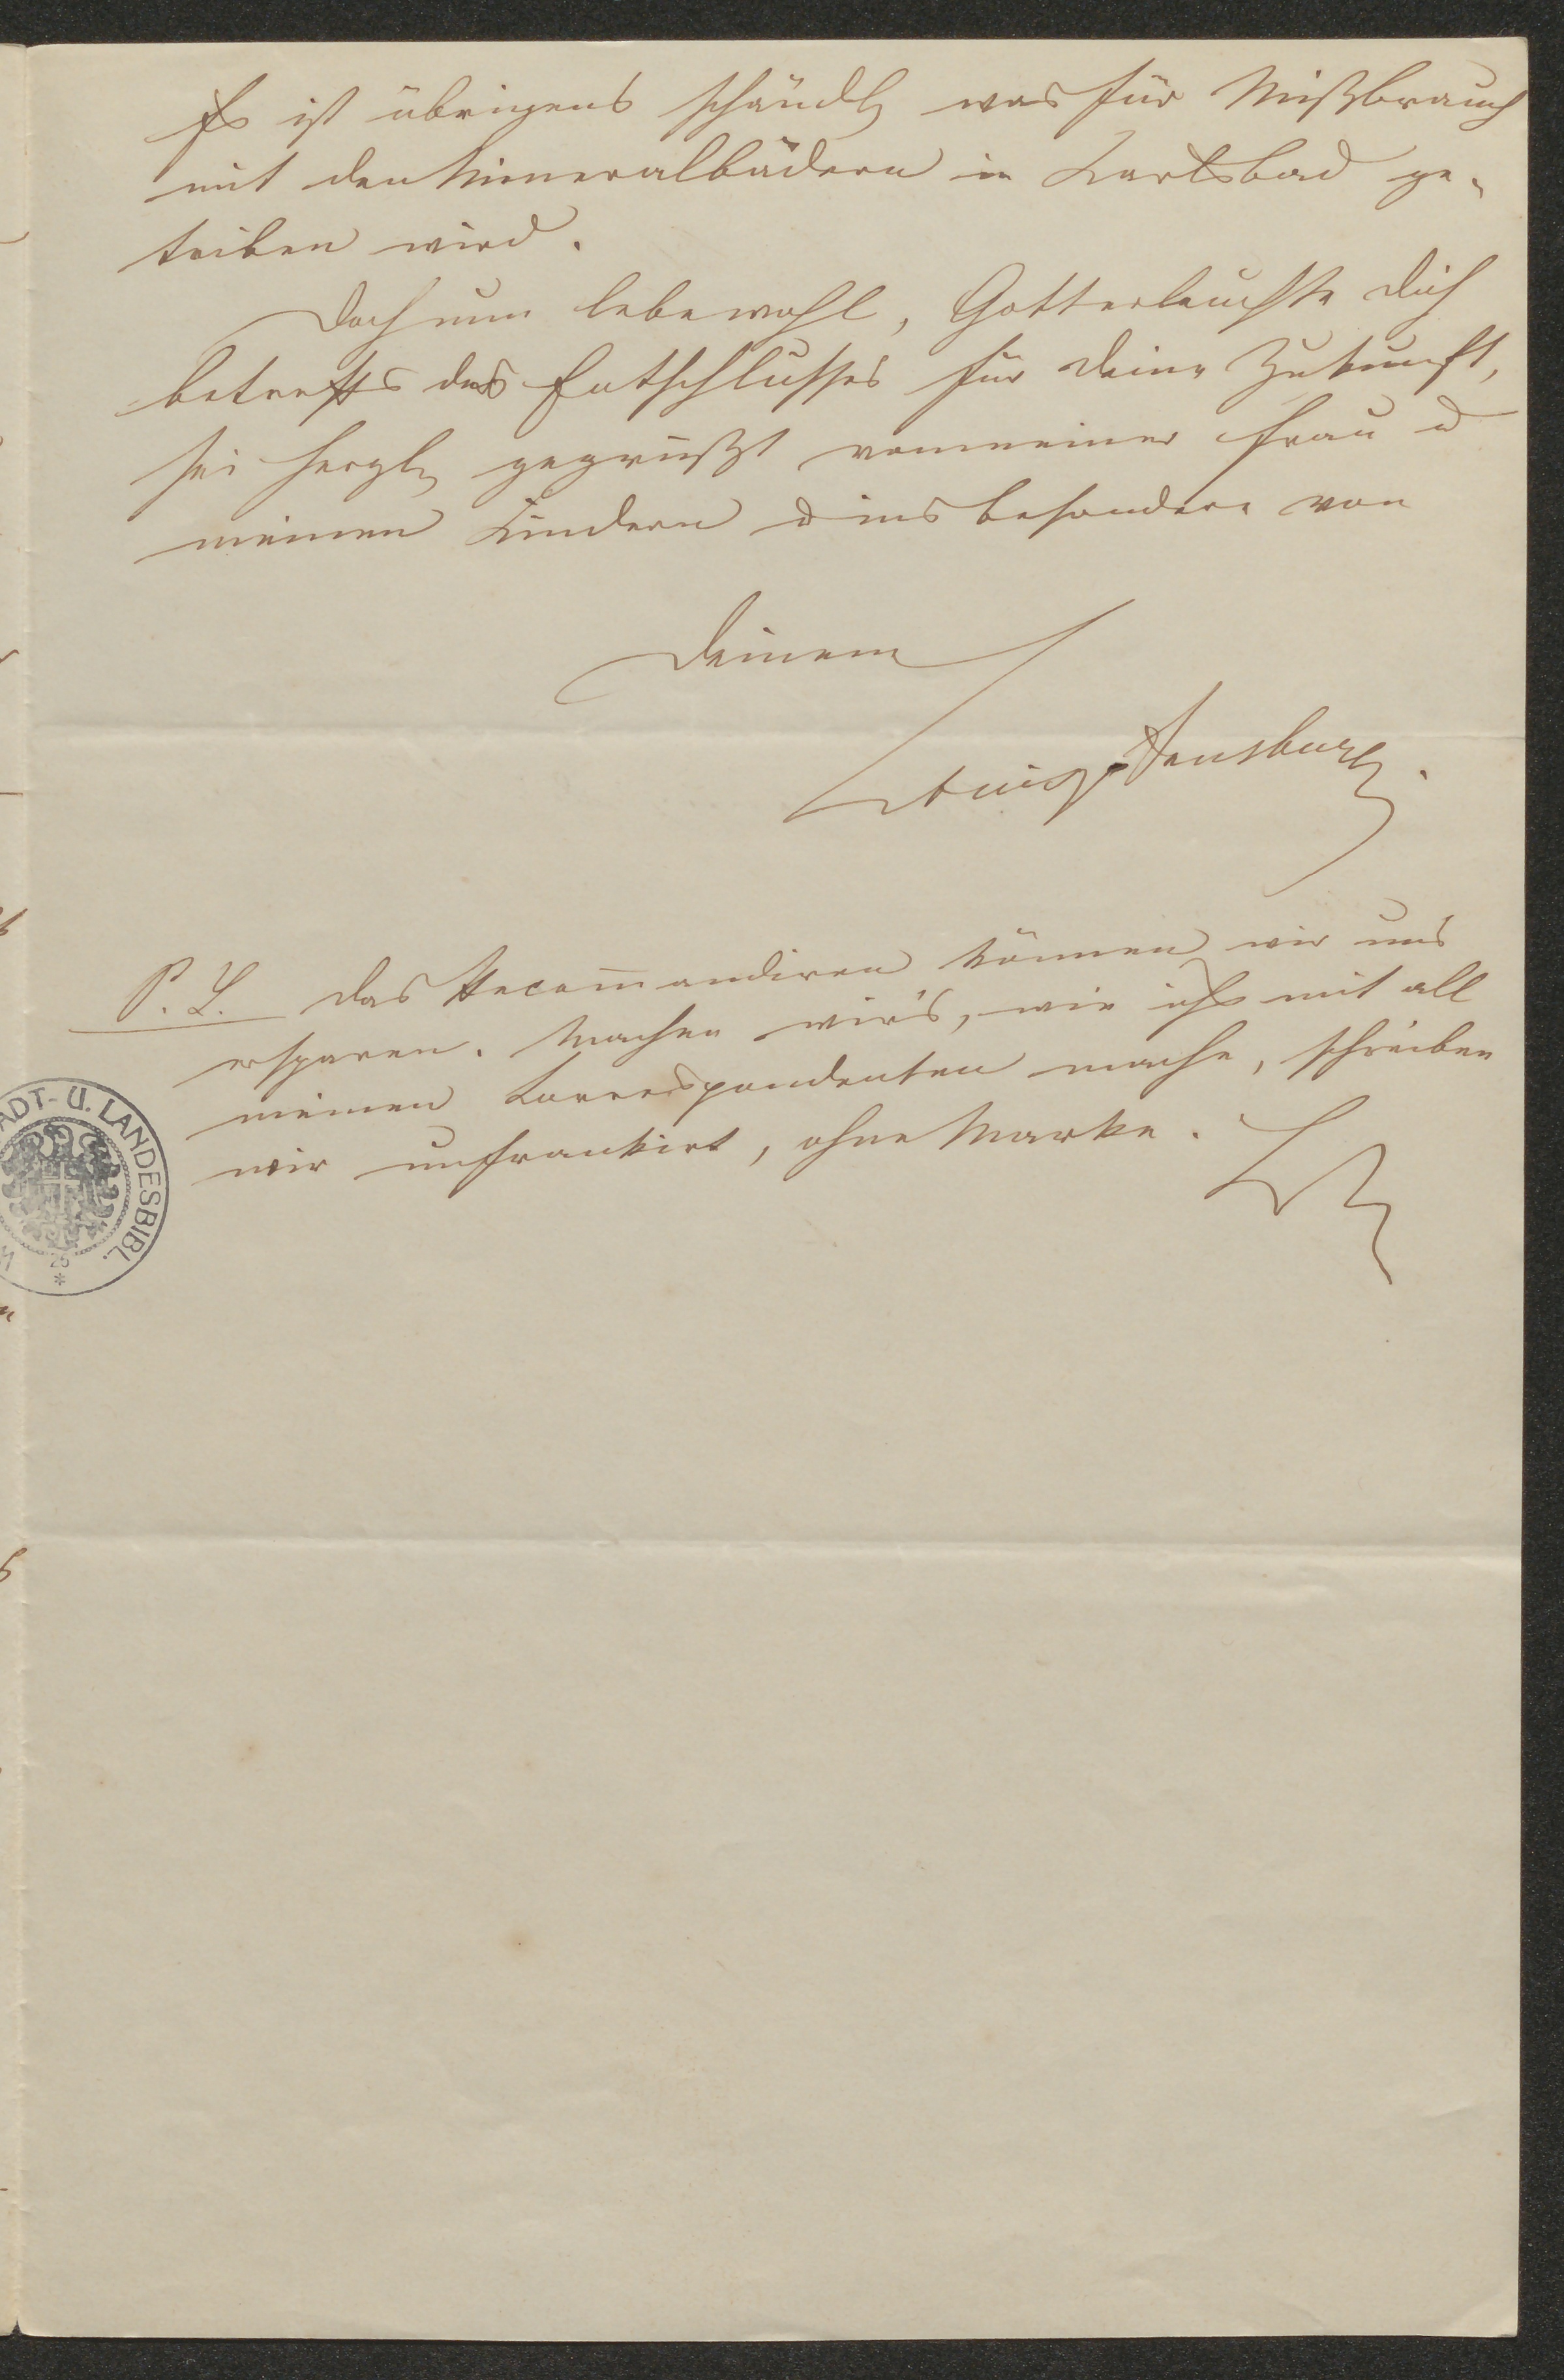 Es ist übrigens schändl was für Mißbrauch
mit den Mineralbädern in Karlsbad ge-
trieben wird.
Doch nun lebe wohl, Gott erleuchte Dich
betreffs des Entschlusses für Deine Zukunft,
sei herzl gegrüßt von meiner Frau u
meinen Kindern u insbesondere von
Deinem
P. S. Das Recom̄andiren können wir uns
ersparen. Machen wir's, wie ichs mit all
meinen Korrespondenten mache, schreiben
wir unfrankirt, ohne Marke.
ADT- U. LANDESBIBL.